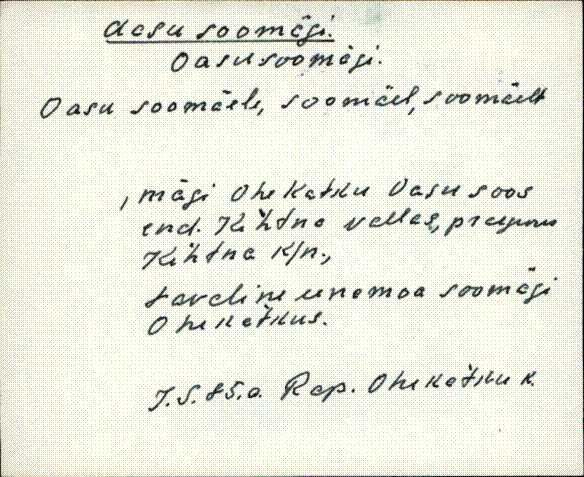 Oasu soomägi.
Oasu soomägi.
Oasu soomäele, soomäel, soomäelt
, mägi Ohekatku Oasu soos
end. Kehtna vallas, praegune
Kehtna k/n.,
tavaline enamoa soomägi
Ohekatkus.
J.S. 85.a. Rap. Ohekatku k.